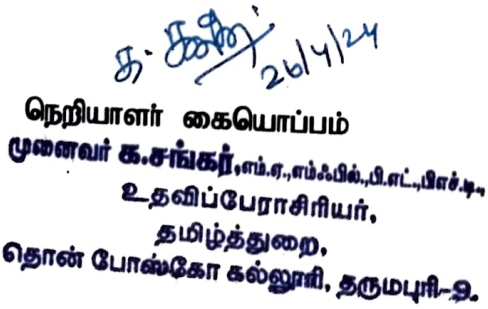 க. சங்கர்
26/4/24
நெறியாளர் கையொப்பம்
முனைவர் க.சங்கர்,எம்.ஏ.,எம்ஃபில்.,பி.எட்.,பிஎச்.டி.,
உதவிப்பேராசிரியர்,
தமிழ்த்துறை,
தொன் போஸ்கோ கல்லூரி, தருமபுரி-9.